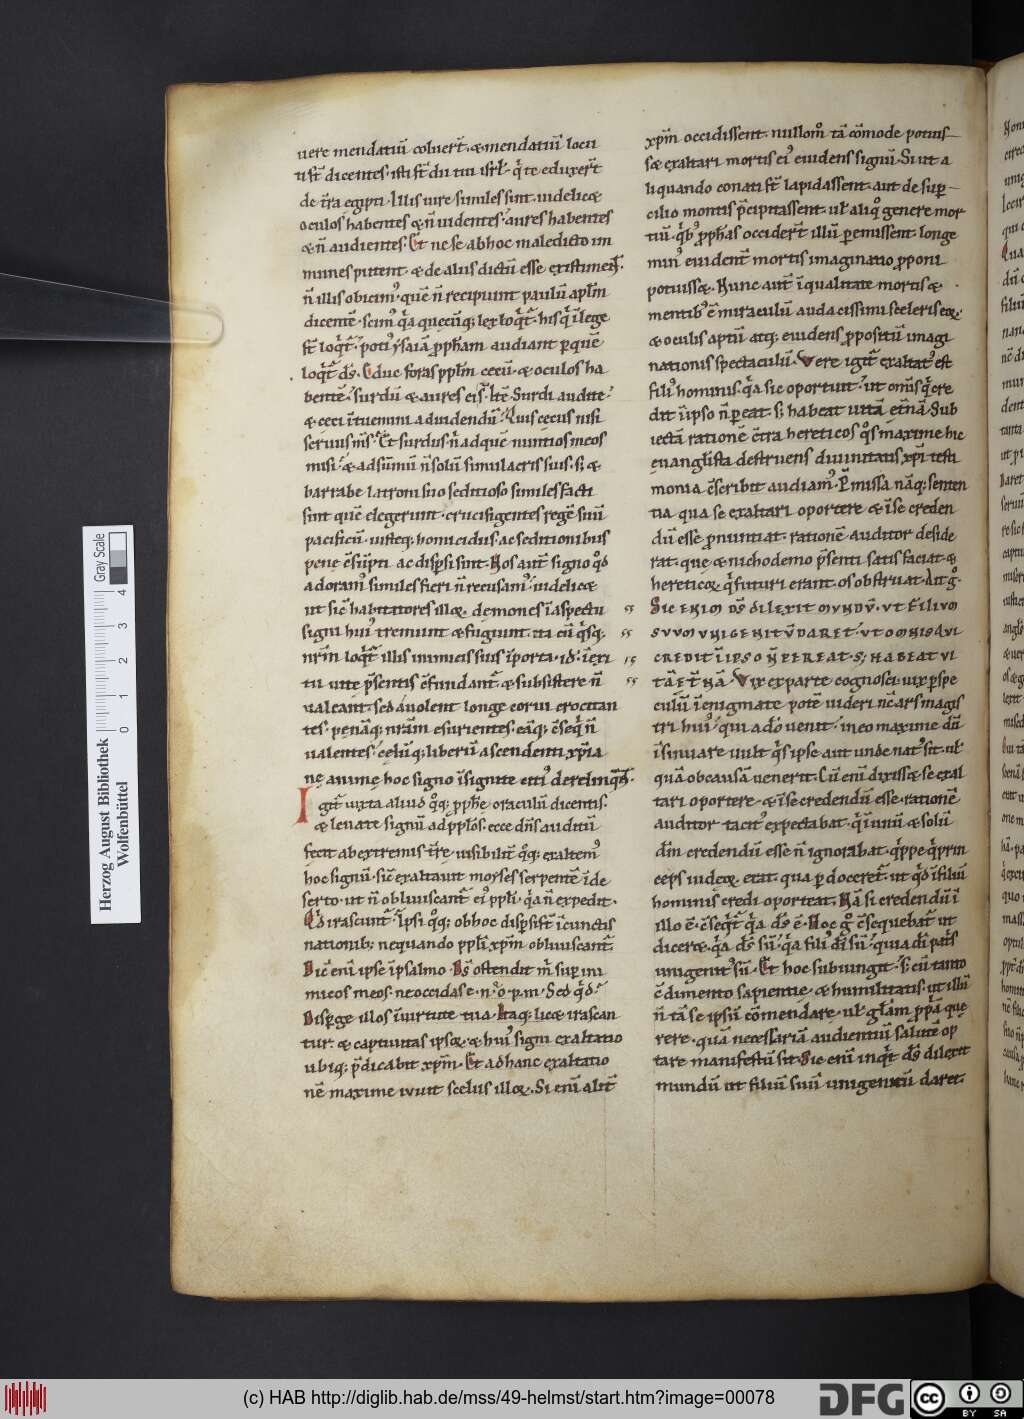 uere mendatiū coluert̄. & mendatiū locu
ti st̄ dicentes. isti st̄ dii tui isrl̄. q̇ te eduxert̄
de t̄ra egipti. Illis iure similes sunt. uidelicę
oculos habentes & n̄ uidentes. aures habentes
& n̄ audientes. Et ne se ab hoc maledicto im
munes putent. & de aliis dictū esse existiment.
n̄ illis obicim᷒. quē n̄ recipiunt paulū aplm̄
dicentē. scim᷒ q̇a quecūq; lex loq̇t̄. his q̇ ī lege
st̄ loq̇t̄. poti᷒ ysaiā ꝓph̄am audiant per quē
loq̇t̄ ds̄. Educ foras pplm̄ cecū. & oculos ha
bentē. surdū & aures ei᷒
Surdi audite.
& ceci ītuemini ad uidendū. Quis cecus nisi
seruus ms̄. Et surdus n̄ ad quē nuntios meos
misi. & ad sūmū n̄ solū simulacris suis. s; &
barrabe latroni suo seditioso similes facti
sunt quē elegerunt. crucifigentes regē suū
pacificū. iusteq; homicidiis. ac seditionibus
pene c̄sūpti. ac disp̄si sunt. Nos aut̄ signo q̊d
adoram᷒ similes fieri n̄ recusam᷒. uidelicę
ut sic̄ habitatores illoꝝ demones ī aspectu
signi hui᷒ tremunt & fugiunt. ita cū q̇sq;
nr̄m loq̇t̄ illis inimicis suis ī porta. id̄. ī exi
tu uite p̄sentis c̄fundant̄. & subsistere n̄
ualeant. sed auolent longe corui crocitan
tes. penāq; nr̄am esurientes. eāq; c̄seq̇ n̄
ualentes. celūq; liberū ascendenti xp̄ia
nę animę hoc signo īsignite etti᷒ derelinq̄t.
Igit̄ iuxta aliud q̊q; ꝓph̄e oraculū dicentis.
& leuate signū ad pplos. ecce dn̄s auditū
fecit ab extremis t̄re. uisibilit̄ q̊q; exaltem᷒
hoc signū. sic̄ exaltauit moyses serpentē ī de
serto. ut n̄ obliuiscant̄ ei᷒ ppli. q̇a n̄ expedit.
Qd̄ irascunt̄. Ipsi q̊q; ob hoc disp̄si st̄ ī cunctis
nationib; nequando ppli xp̄m obliuiscant̄.
Dic̄ enī ipse ī psalmo. Ds̄ ostendit m̄ sup ini
micos meos. ne occidas e. n. o. p. m. Sed q̊d.
Disperge illos ī uirtute tua. Itaq; licę irascan
tur. & captiuitas ipsoꝝ. & hui᷒ signi exaltatio
ubiq; p̄dicabit xp̄m. Et ad hanc exaltatio
nē maxime iuuit scelus illoꝝ. Si enī alit̄
xp̄m occidissent. nullom̊ tā cōmode potuis
sę exaltari mortis ei᷒ euidens signū. Si ut a
liquando conati st̄ lapidassent. aut de super
cilio montis p̄cipitassent. ul̄ aliq̊ genere mor
tiū. q̇b᷒ ꝓph̄as occidert̄ illū peremissent. longe
min᷒ euident̄ mortis imaginatio ꝓponi
potuissę. Hunc aut̄ ī qualitate mortis &
mentib᷒ ē miraculū audacissimi sceleris eoꝝ
& oculis aptū atq; euidens ꝓpositū imagi
nationis spectaculū. Vere igit̄ exaltat᷒ est
fili᷒ hominis. q̇a sic oportuit. ut om̄s q̇ cre
dit ī ipso n̄ pereat. s; habeat uitā et̄nā. Sub
iectā rationē c̄tra hereticos q̊s maxime hic
euangl̄ista destruens diuinitatis xp̄i testi
monia c̄scribit audiam᷒. P̄missa nāq; senten
tia qua se exaltari oportere & ī se creden
dū esse ꝓnuntiat. rationē auditor deside
rat. que & nichodemo p̄senti satisfaciat. &
hereticoꝝ q̇ futuri erant. os obstruat. Ait g̊.
SIC ENIM DS̄ DILEXIT MVNDV̄. VT FILIVM
SVVM VNIGENITV̄ DARET. VT OMNIS QVI
CREDIT Ī IPSO N̄ PEREAT. S; HABEAT VI
TĀ ET̄NĀ. Vix ex parte cognosci. uix per spe
culū ī enigmate potē uideri nc̄ ars magis
tri hui᷒. qui a do uenit. in eo maxime dn̄
īsinuare uult q̇s ipse aut unde nat᷒ sit. ul̄
quā ob causā uenerit. Cū enī dixissę se exal
tari oportere. & ī se credendū esse. rationē
auditor tacit᷒ expectabat. q̇ ī unū & solū
dm̄ credendū esse n̄ ignorabat. q̇ppe q̇ prin
ceps iudeoꝝ erat. qua per doceret̄. ut q̊d ī filiū
hominis credi oporteat. Nā si credendū ī
illo ē. c̄seq̇t̄ q̇a ds̄ ē. Hoc g̊ c̄sequebat̄ ut
dicerę. q̇a ds̄ sū. q̇a fili᷒ dī sū. quia dī pat̄s
unigenit᷒ sū. Et hoc subiungit. s; cū tanto
c̄dimento sapientie. & humilitatis. ut illū
n̄ tā se ipsū cōmendare. ul̄ gl̄am ꝓpā que
rere. quā necessariā audientiū salutē op
tare manifestū sit. Sic enī inq̇t ds̄ dilexit
mundū ut filiū suū unigenitū daret.
Herzog August Bibliothek
Wolfenbüttel
Gray Scale
0 1 2 3 4
(c) HAB http://diglib.hab.de/mss/49-helmst/start.htm?image=00078
DFG
cc BY SA